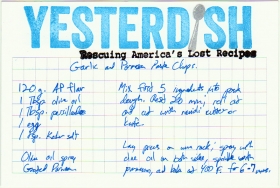 YESTERDISH
Rescuing America's Lost Recipes
Garlic and Parmesan Pasta Chips.
120g. AP flour
1 Tbsp olive oil
1 Tbsp
1 egg
1 tsp. Kosher salt
Olive oil spray
Grated Parmesan
Mix first 5 ingredients into pasta
dough. Rest 20 min, roll out
cut with ravioli cutter or
knife.
Lay pieces on wire rack; spray with
olive oil on both sides, sprinkle with
parmesan, and bake at 400 F. for 6-7 mins.